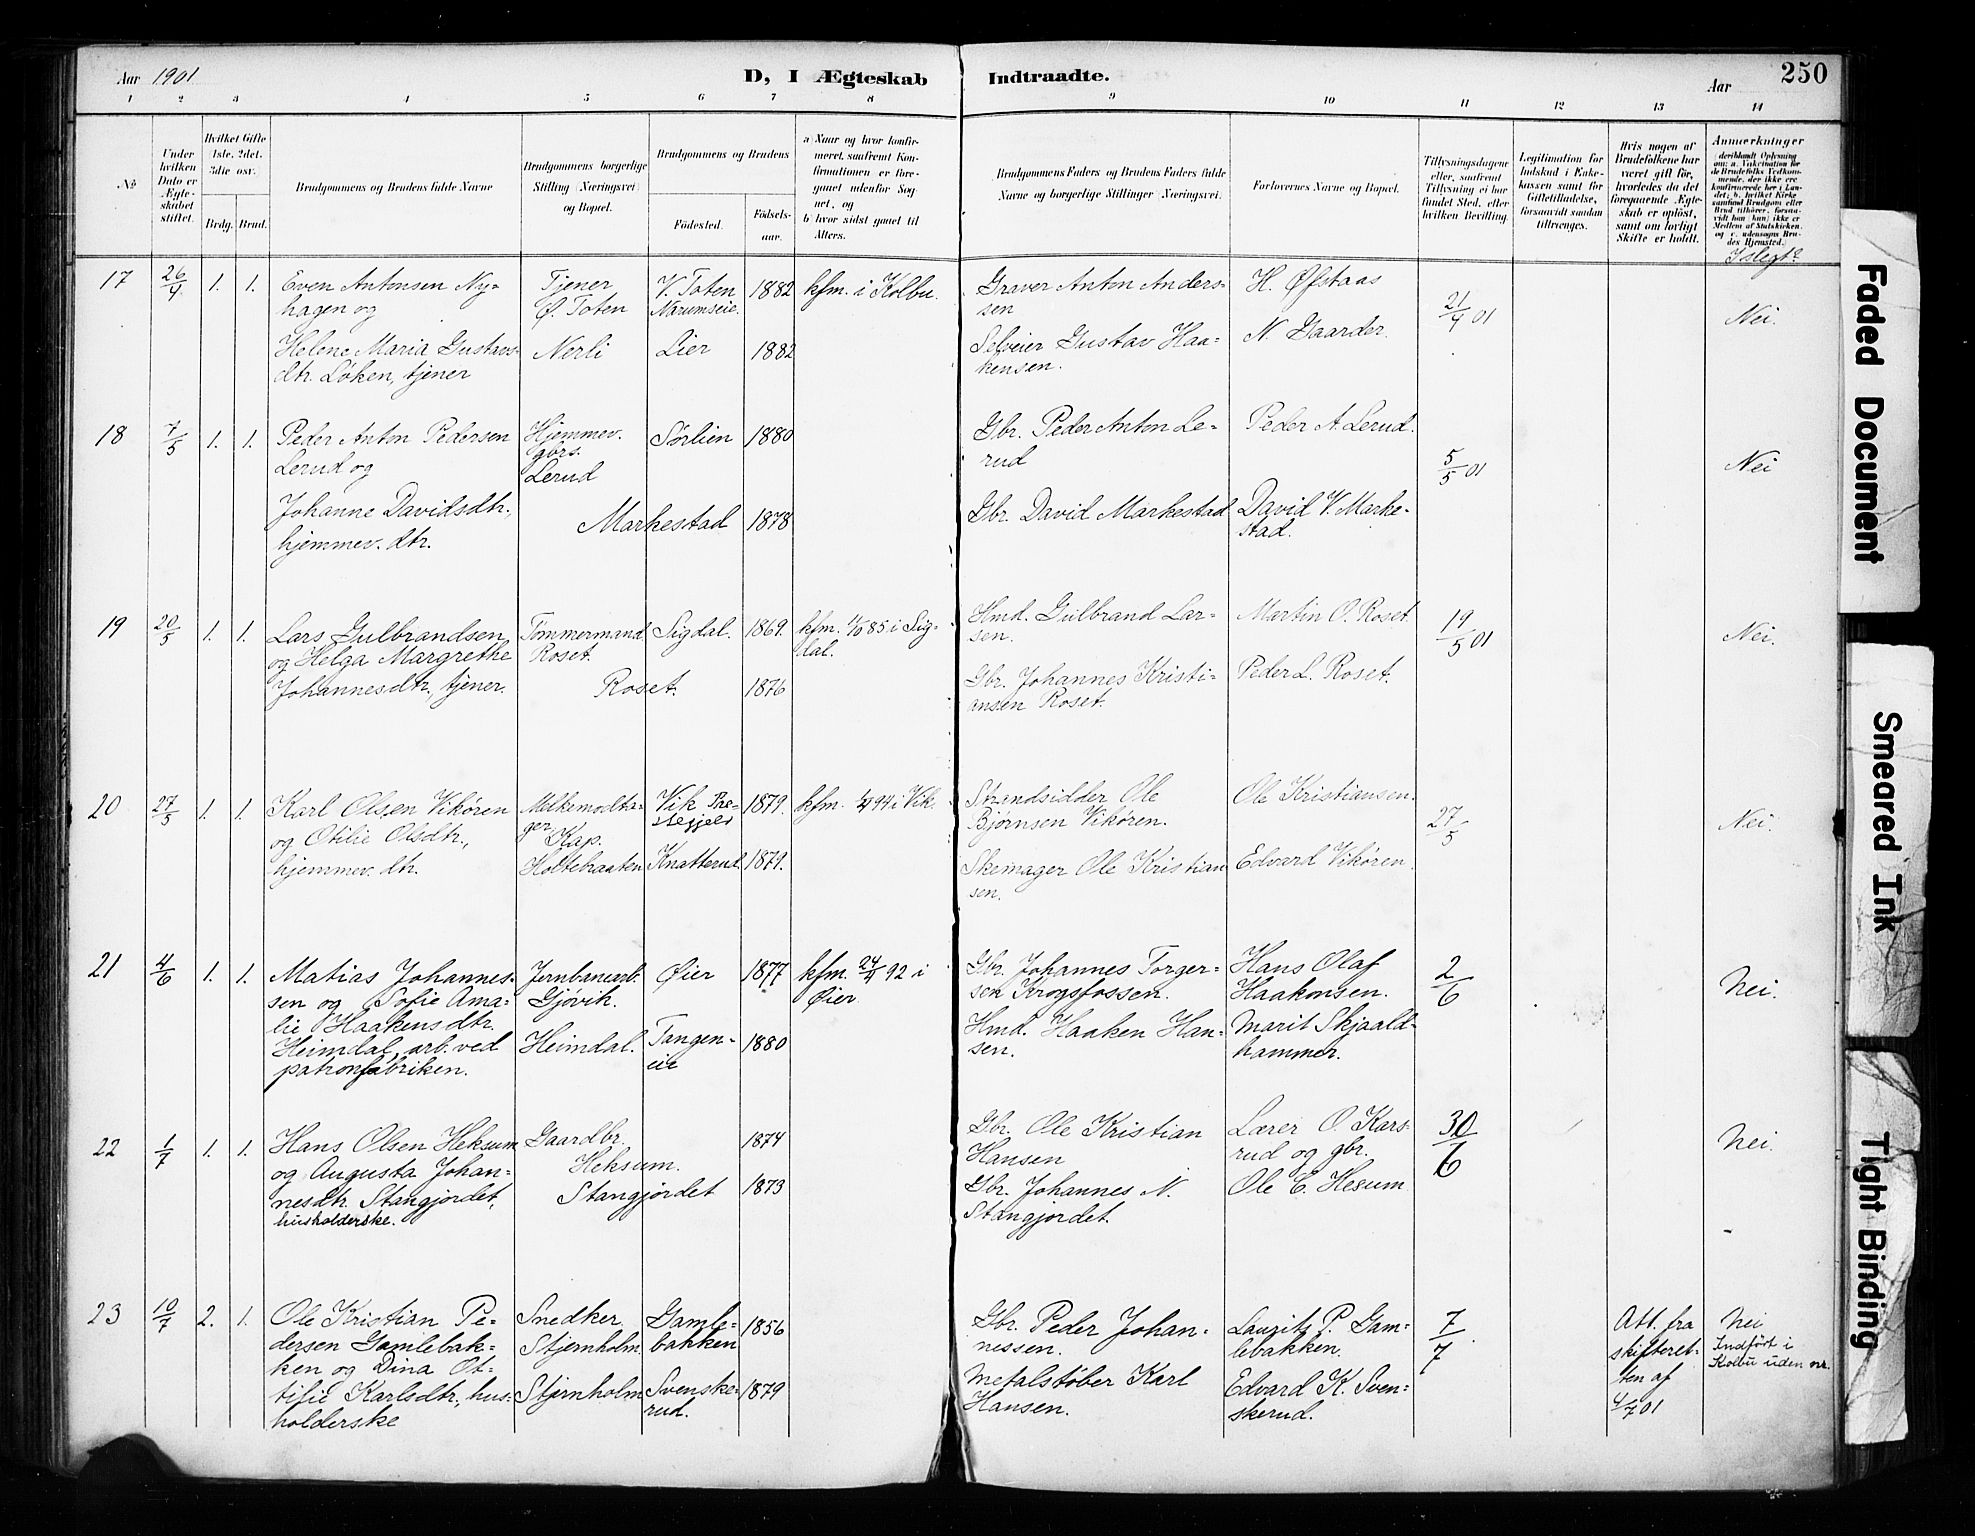 Aar 1901
D, I Ægteskab Indtraadte.
Aar 250
1 2 3 4 5 6 7 8 9 10 11 12 13 14
No
Under hvilken Dato er Ægteskabet stiftet.
Hvilket Gifte 1ste, 2det, 3die osv.
Brdg. Brud.
Brudgommens og Brudens fulde Navne
Brudgommens borgerlige Stilling (Næringsvei) og Bopæl.
Brudgommens og Brudens
Fødested.
Fødselsaar.
a) Naar og hvor konfirmeret, saafremt Konfirmationen er foregaaet udenfor Sognet, og
b) hvor sidst gaaet til Alters.
Brudgommens Faders og Brudens Faders fulde Navne og borgerlige Stillinger (Næringsvei).
Forlovernes Navne og Bopæl.
Tillysningsdagene eller, saafremt Tillysning ei har fundet Sted, efter hvilken Bevilling.
Legitimation for Indskud i Enkekassen samt for Giftetilladelse, forsaavidt saadan tiltrænges.
Hvis nogen af Brudefolkene har været gift før, hvorledes da det foregaaende Ægteskab er opløst, samt om lovligt Skifte er holdt.
Anmærkninger
I slegt?
17 26/4 1. 1.
Even Antonsen Ny-
hagen og
Helene Maria Gustavs-
dtr. Løken, tjener
Tjener
Ø. Toten
Nerli
V. Toten
Narumseie.
Lier
1882
1882
kfm. i Kolbu.
Graver Anton Anders-
sen
Selveier Gustav Haa-
kensen.
H. Øfstaas
N. Gaarder.
21/4 01
Nei.
18 7/5 1. 1.
Peder Anton Pedersen
Lerud og
Johanne Davidsdtr.,
hjemmev. dtr.
Hjemmev.
gbrs.
Lerud
Markestad
Sørlien
1880
1878
Gbr. Peder Anton Le-
rud
Gbr. David Markestad
Peder A. Lerud.
David V. Marke-
stad.
5/5 01
Nei
19 20/5 1. 1.
Lars Gulbrandsen
og Helga Margrethe
Johannesdtr., tjener.
Tømmermand
Roset.
Roset.
Sigdal.
1869.
1876
kfm. 1/10 85 i Sig-
dal.
Hmd. Gulbrand Lar-
sen.
Gbr. Johannes Kristi-
ansen Roset.
Martin O. Roset
Peder L. Roset.
19/5 01
Nei.
20 27/5 1. 1.
Karl Olsen Vikøren
og Otilie Olsdtr.,
hjemmev. dtr.
Melkemodta-
ger
Kap.
Holtebraaten
Vik Pre-
stegjeld
Knatterud
1879.
1879.
94 i Vik.
Strandsidder Ole
Bjørnsen Vikøren.
Skomager Ole Kristian
sen.
Ole Kristiansen.
Edvard Vikøren.
27/5
Nei.
21 4/6 1. 1.
Matias Johannes-
sen og Sofie Ama-
lie Haakensdtr.
Heimdal, arb. ved
patronfabriken.
Jernbanearb.
Gjøvik.
Heimdal.
Øier
Tangen-
eie
1877
1880
kfm. 24/4 92 i
Øier.
Gbr. Johannes Torger-
sen Krogsfossen.
Hmd. Haaken Han-
sen.
Hans Olaf
Haakonsen.
Marit Skjaald-
hammer.
2/6
Nei.
22 1/7 1. 1.
Hans Olsen Heksum
og Augusta Johan-
nesdtr. Stangjordet,
husholderske.
Gaardbr.
Heksum.
Stangjordet
1874
1873
Gbr. Ole Kristian
Hansen
Gbr. Johannes N.
Stangjordet.
Lærer O. Kars-
rud og gbr.
Ole E. Hesum
30/6
Nei.
23 10/7 2. 1.
Ole Kristian Pe-
dersen Gamlebak-
ken og Dina Ot-
tilie Karlsdtr., hus-
holderske
Snedker
Stjernholm
Stjernholm
Gamle-
bakken
Svenske-
rud.
1856
1879
Gbr. Peder Johan-
nessen.
Metalstøber Karl
Hansen.
Laurits P. Gam-
lebakken.
Edvard K. Sven-
skerud.
7/7.
Att. fra
skifteret-
ten af
4/7 01
Nei
Indført i
Kolbu uden nr.
Faded Document
Smeared Ink
Tight Binding